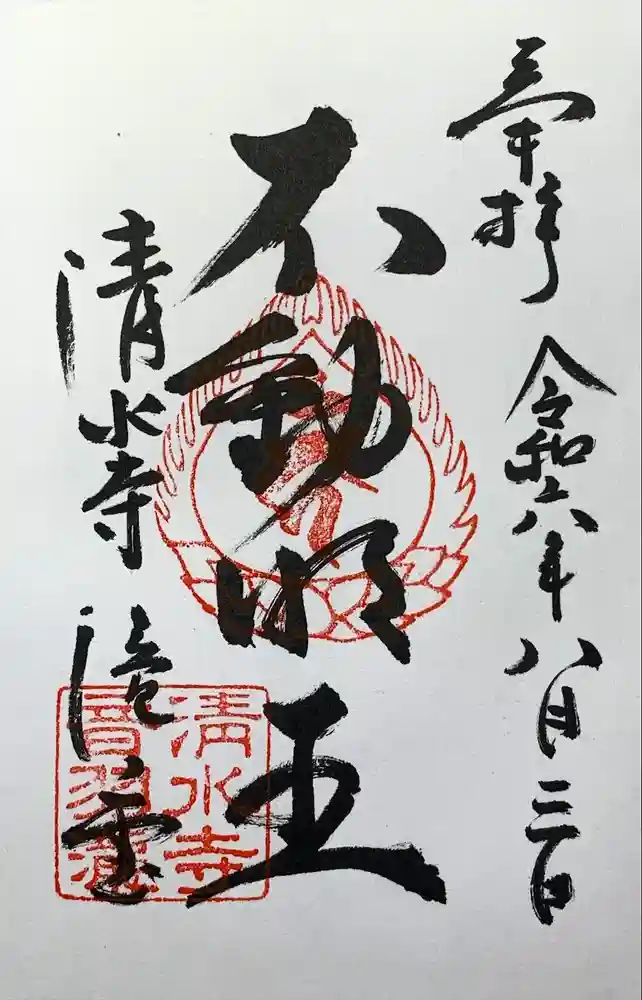 奉拝 令和六年八月三日
不動明王
清水寺 滝堂
清水寺
音羽瀧